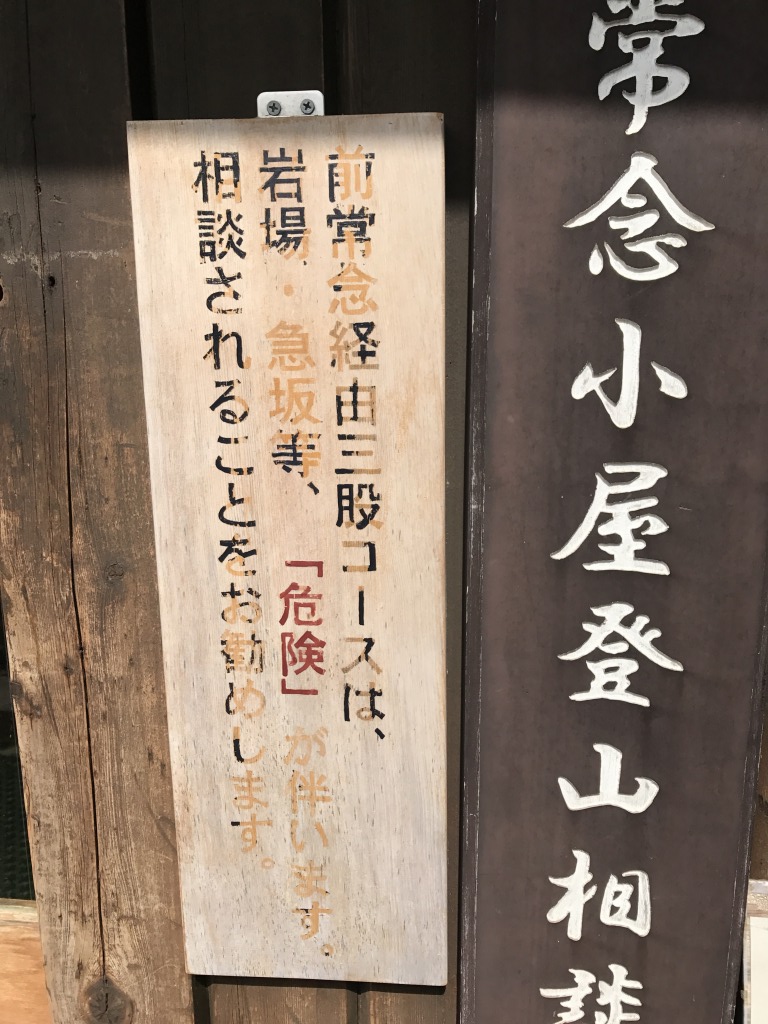 常念小屋登山相談
前常念経由三股コースは、
岩場・急坂等、「危険」が伴います。
相談されることをお勧めします。